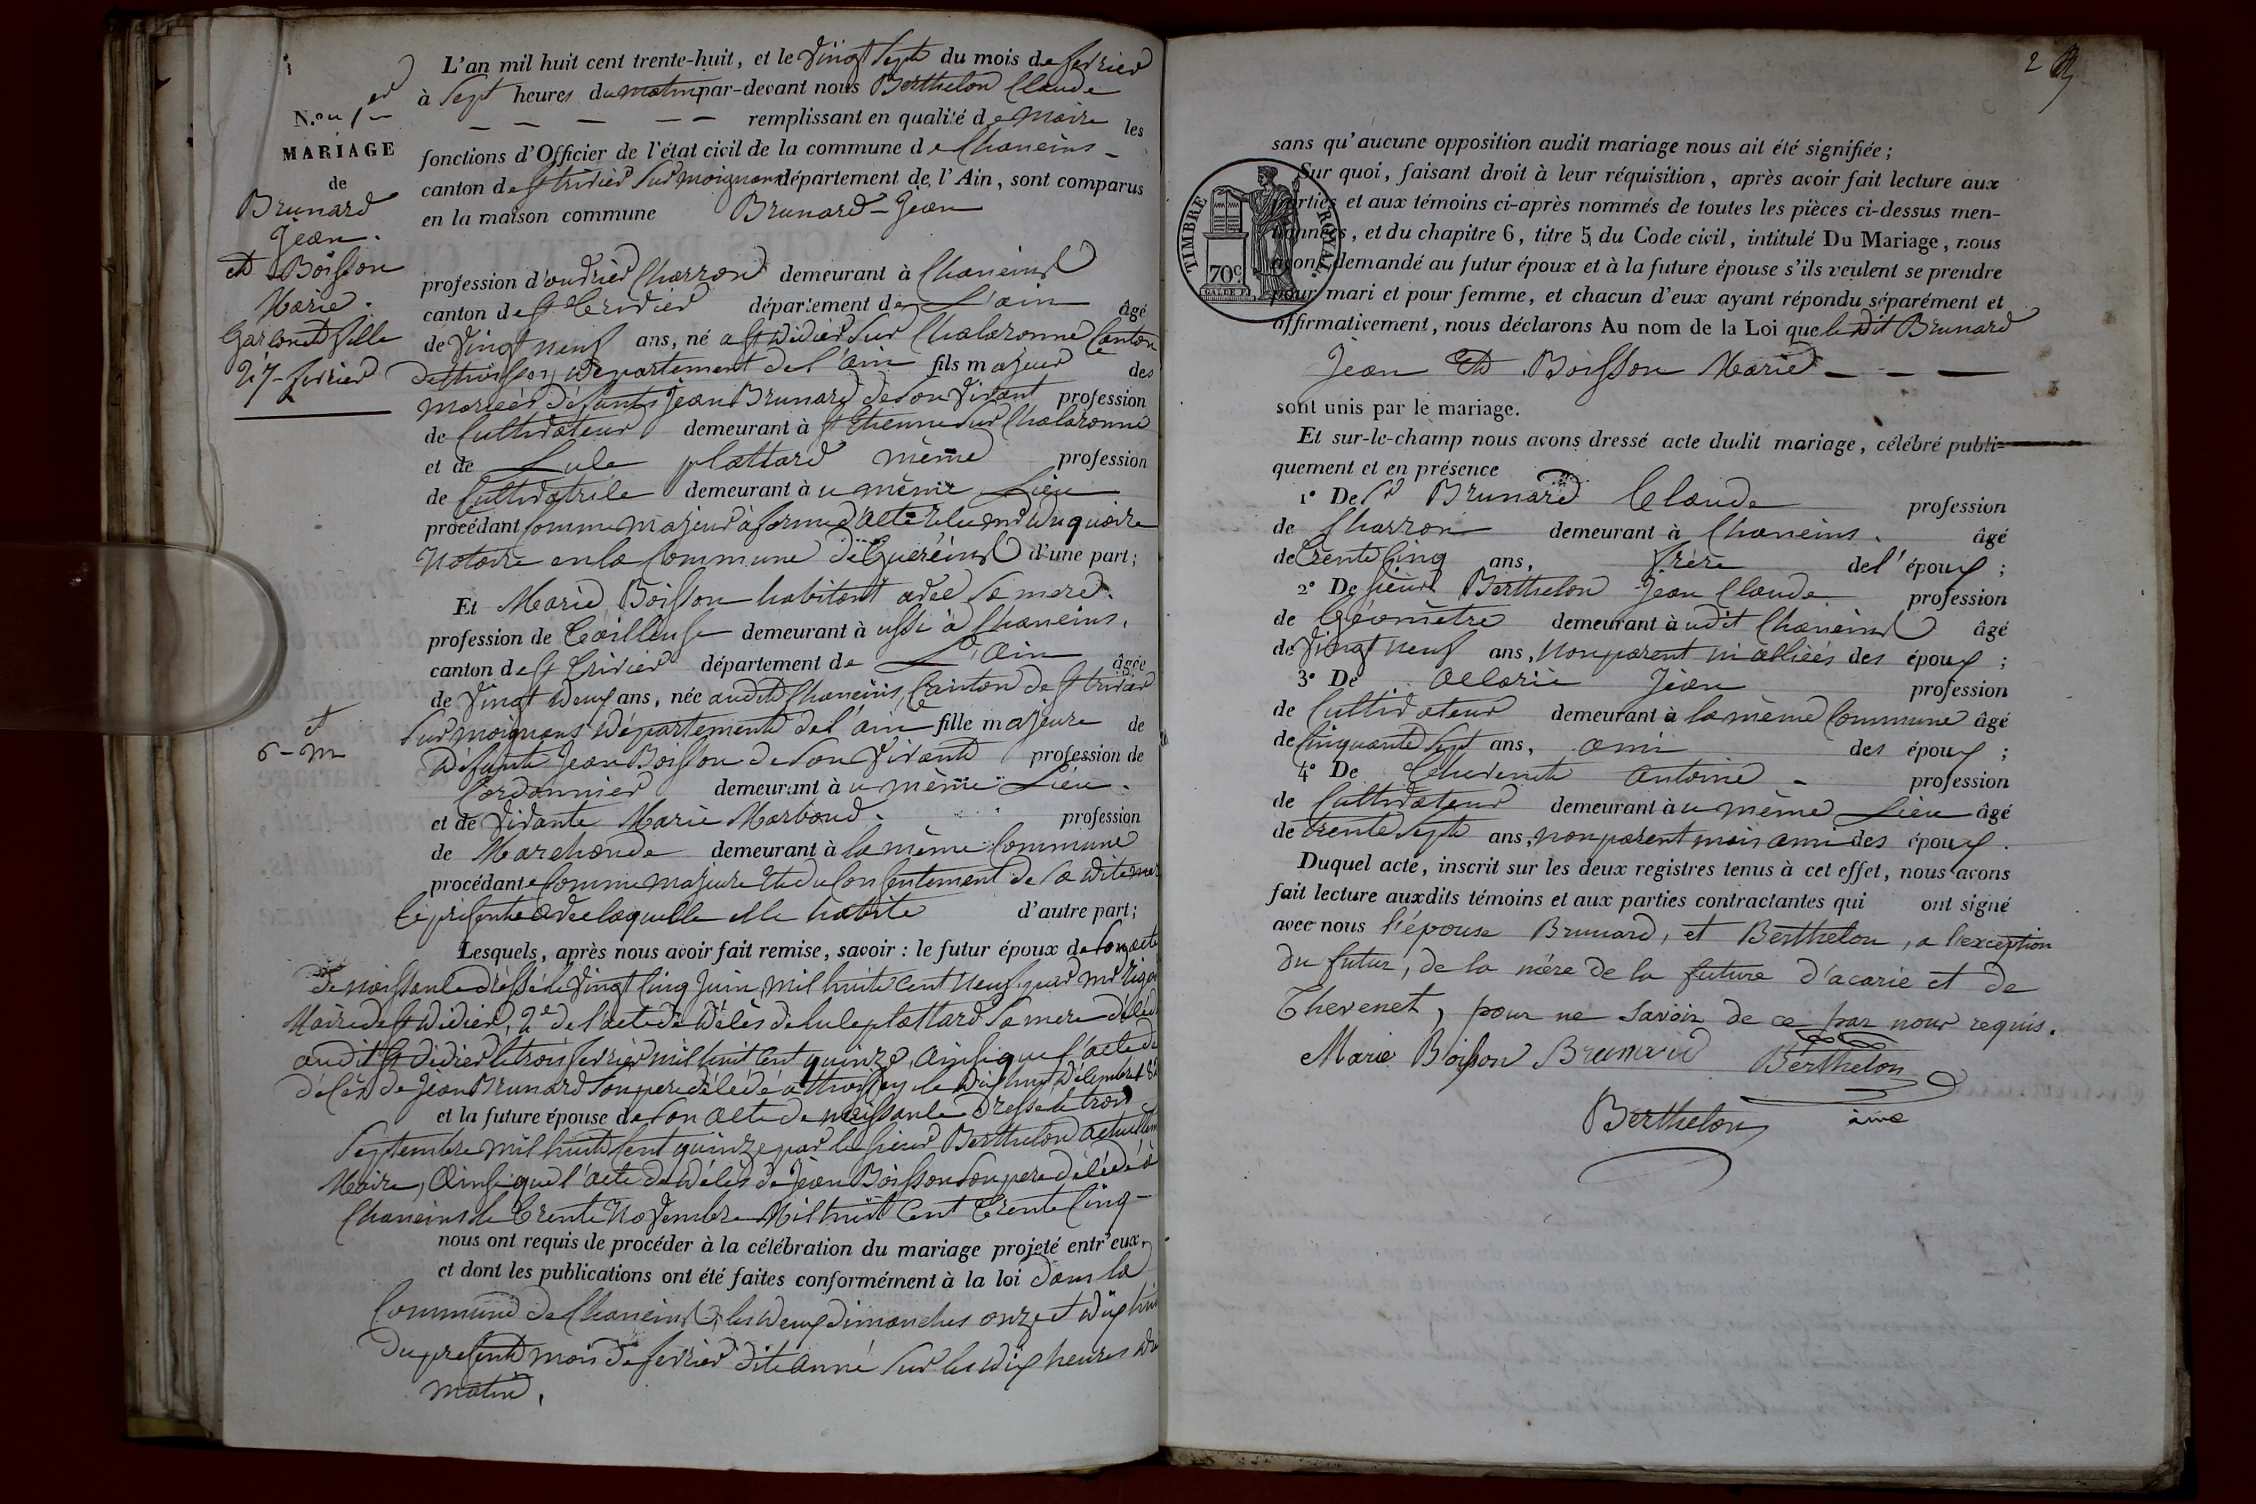 N.º au 1er
MARIAGE
de
Brunard
Jean.
et Boisson
Marie.
Garçon et fille
27 - fevrier
6 - m
L'an mil huit cent trente-huit, et le Vingt Sept du mois de fevrier
à Sept heures du matin par-devant nous Berthelon Claude
remplissant en qualité de Maire les
fonctions d'Officier de l'état civil de la commune de Chaneins
canton de St trivier Sur moignans département de l'Ain, sont comparus
en la maison commune Brunard - Jean
profession d'ouvrier Charron demeurant à Chaneins
canton de St Trivier département de L'ain âgé
de Vingt neuf ans, né a St Didier Sur Chalaronne Canton
de thoissey Département de l'ain fils majeur des
mariées défunts Jean Brunard de Son Vivant profession
de Cultivateur demeurant à St Etienne Sur Chalaronne
et de Lule plattard même profession
de Cultivatrice demeurant à u même Lieu
procédant Comme majeur à forme d'acte Duquaire
Notaire en la Commune de Guéréins d'une part;
Et Marie Boisson habitant avec Sa mere.
profession de Tailleuse demeurant à ussi à Chaneins.
canton de St Trivier département de L'Ain âgée
de Vingt Deux ans, née audit Chaneins, Canton de St trivier
Sur moignans Département de l'ain fille majeure de
Défunt Jean Boisson de Son Vivant profession de
Cordonnier demeurant à u même Lieu.
et de Vivante Marie Marboud. profession
de Marchande demeurant à la même Commune
procédante Comme majeure et du Consentement de Sa dite mere
Ci présente avec laquelle elle habite d'autre part;
Lesquels, après nous avoir fait remise, savoir : le futur époux de Son acte
de naissance dréssé le Vingt Cinq Juin mil huit Cent neuf par mr
Maire de St Didier, 2e de l'acte de Décès de Lule plattard Sa mere décédé
audit St Didier le trois fevrier mil huit Cent quinze, ainsi que l'acte de
décès de Jean Brunard Son pere décédé à thoissey le Dix huit Décembre
et la future épouse de Son acte de naissance Dressé le trois
Septembre mil huit Cent quinze par le Sieur Berthelon actuellem
Maire, Ainsi que l'acte de Décès de Jean Boisson Son pere décédé à
Chaneins le Trente Novembre Mil huit Cent Trente Cinq -
nous ont requis de procéder à la célébration du mariage projeté entr'eux,
et dont les publications ont été faites conformément à la loi dans la
Commune de Chaneins les Deux dimanches onze et Dix huit
Du présent mois de fevrier dite anné Sur les Dix heures du
matin.
2
sans qu'aucune opposition audit mariage nous ait été signifiée;
Sur quoi, faisant droit à leur réquisition, après avoir fait lecture aux
parties et aux témoins ci-après nommés de toutes les pièces ci-dessus men-
tionnées, et du chapitre 6, titre 5, du Code civil, intitulé Du Mariage, nous
avons demandé au futur époux et à la future épouse s'ils veulent se prendre
pour mari et pour femme, et chacun d'eux ayant répondu séparément et
affirmativement, nous déclarons Au nom de la Loi que le dit Brunard
Jean Et Boisson Marie
sont unis par le mariage.
Et sur-le-champ nous avons dressé acte dudit mariage, célébré publi-
quement et en présence
1º De Sr Brunard Claude profession
de Charron demeurant à Chaneins. âgé
de Trente Cinq ans, frère de l'époux;
2º De Sieur Berthelon Jean Claude profession
de Géomètre demeurant à udit Chaneins âgé
de Vingt neuf ans, non parent ni alliéés des époux;
3º De Allarie Jean profession
de Cultivateur demeurant à la même Commune âgé
de Cinquante Sept ans, ami des époux;
4º De Thevenet antoine - profession
de Cultivateur demeurant à u même Lieu âgé
de trente Sept ans, non parent mais ami des époux.
Duquel acte, inscrit sur les deux registres tenus à cet effet, nous avons
fait lecture auxdits témoins et aux parties contractantes qui ont signé
avec nous l'épouse Brunard, et Berthelon, a l'exception
du futur, de la mére de la future d'acarie et de
Thevenet, pour ne savoir de ce par nous requis.
Marie Boisson Brunard Berthelon
Berthelon
TIMBRE ROYAL.
70c